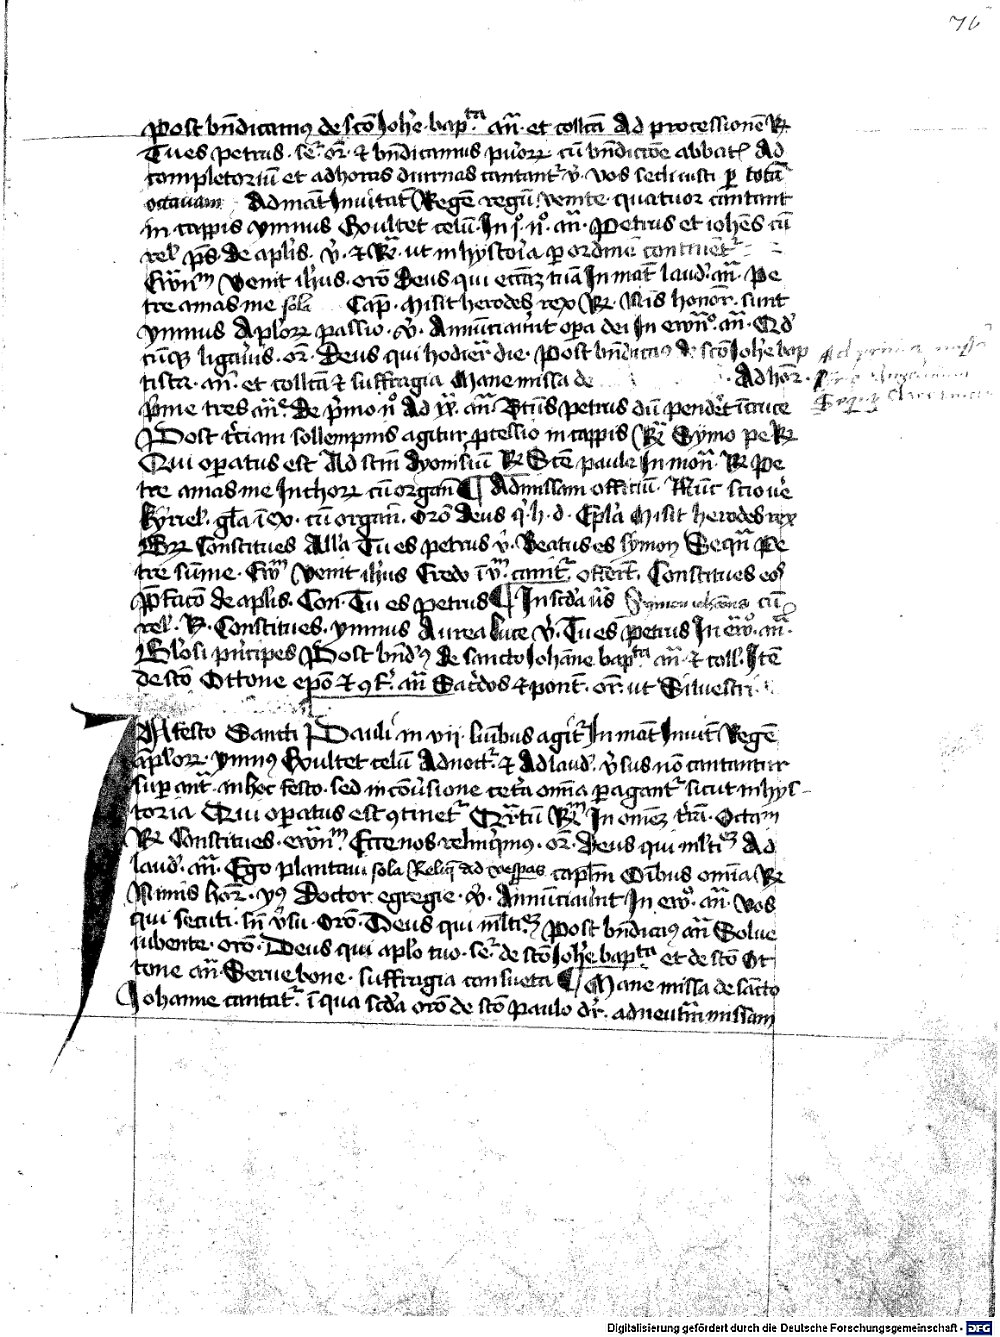 76
Post bn̄dicamus de sc̄o Joh̄e bap.ta an̄. et coll̄ca Ad processionē R
Tu es petrus. se. or. et bn̄dicamus puōrr cū bn̄dictōe abbat. Ad
completoriū et ad horas diurnas cantant v̄. vos secl̄i iusti p totā
octauam Ad mat̄ Inuitat̄ Regē regū. venite quatuor cantant
in cappis ymnus Exultet celū. In j. n̊. an̄. Petrus et ioh̄es cū
rel. ps. de apl̄is. v̄. et R. ut in hystoria p ordinē continet
Ewn̄m Venit ih̄us. orō Deus qui eccl̄iaz tuā In mat̄ laud. an̄. Pe
tre amas me sola Cap̄. Misit herodes rex R. Nīs honor. sunt
ymnus Apl̄orr passio. v̄. Annūciauerūt opa dei In ewn̄o. an̄. Qd
cūqz ligaūis. or. Deus qui hodiern̄. die. Post bn̄dicam̄ de sc̄o Joh̄e bap
tista. an̄. et coll̄ca et suffragia Mane missa de . Ad hor.
p̄me tres an̄e. De p̄mo n̊ Ad xx. an̄. Bt̄us petrus dū penderet ī cruce
Post t̄ciam sollempnis agitur p̄cessio in cappis R Symo pe R
Qui operatus est Ad sc̄m dyonisiū R Sc̄e paule In mon̄. R Pe
tre amas me In chorr cū organ̄ Ad missam officiū. Nūc scio ūe
kyriel. gl̄a ī ex. cū organ̄. orō Deus q. h. d. Epl̄a Misit herodes rex
Grr Constitues All̄a Tu es petrus v̄. Beatus es symon Sequn̄ Pe
tre sūme. Ew̄m Venit ih̄us Credo ī v̄m. canit. offert̄. Constitues eos
Pfacō de apl̄is. Con. Tu es petrus In scd̄a ūs̄ cū
rel. R. Constitues. ymnus Aurea luce v̄. Tu es petrus In ew̄o. an̄.
Gl̄osi p̄ncipes Post bn̄d. de sancto Johāne bap.ta an̄. et coll. Itē
de sc̄o Ottone ep̄o et 9f. an̄ Sac̄dos et pont̄. or. ut Siluestri
In festo Sancti Pauli in vij. l̄nibus agit In mat̄ Inuit̄ Regē
apl̄orr. ymn9 Exultet celū Ad noct. et Ad laud. v̄sus nō cantantur
sup ant̄. in hoc festo. sed in con̄usione cetā om̄ia pagant sicut in hys-
toria Qui operatus est 9tinet Qr̄tū R In om̄ez t̄ra. Octam
R Constitues. ewn̄m. Ecce nos relinqm9. or. Deus qui ml̄tiez Ad
laud. an̄. Ego plantaui sola Reliq ad vesperas capl̄m Oībus omīa R
Nimis hor. y9 Doctor egregie. v̄. Annūciauūt In ew̄o. an̄. Vos
qui secuti. In v̄sū. Orō. Deus qui ml̄tiez Post bn̄dicam9 an̄ Solue
iubente. orō. Deus qui apl̄o tuo. se. de sc̄o Joh̄e bap.ta et de sc̄o Ot
tone an̄. Serue bone. suffragia consueta Mane missa de sāncto
Johanne cantat. ī qua scd̄a orō de sc̄o paulo dr. ad neutrām missam
Digitalisierung gefördert durch die Deutsche Forschungsgemeinschaft - DFG